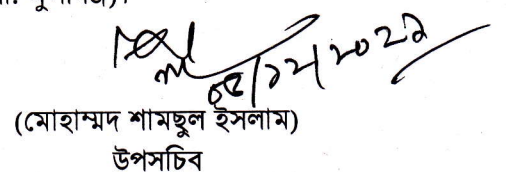 ০৫/১২/২০২২
(মোহাম্মদ শামছুল ইসলাম)
উপসচিব